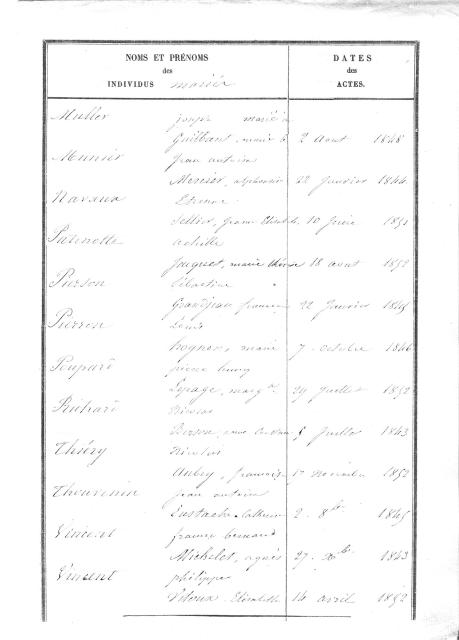 NOMS ET PRÉNOMS
des
INDIVIDUS mariés
DATES
des
ACTES.
Muller joseph marié à
Guilbant, marie 2 Aout 1848
Munier jean antoine
Mercier, alphonsine 22 janvier 1844
Navaux Etienne
Sellier, Elisab. 10 1851
achille
Jacquet, marie thérèse 18 aout 1852
Pierson Sébastien
Grandjean françoise 22 janvier 1845
Pierron Louis
marie 7 octobre 1846
Poupard pierre henry
Lepage, marg.te 29 juillet 1852
Richard Nicolas
Berson, anne 5 juillet 1843
Thiéry Nicolas
Aubry, françoise 17 novembre 1852
Thouvenin jean antoine
Eustache Catherine 2. 8bre 1845
Vincent francois bernard
Michelet, agnès 27. Xbre 1843
Vincent philippe
Elisabeth 14 avril 1852